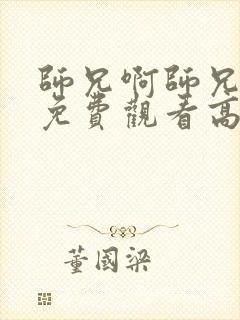 師兄啊師兄
免費觀看高
董國梁